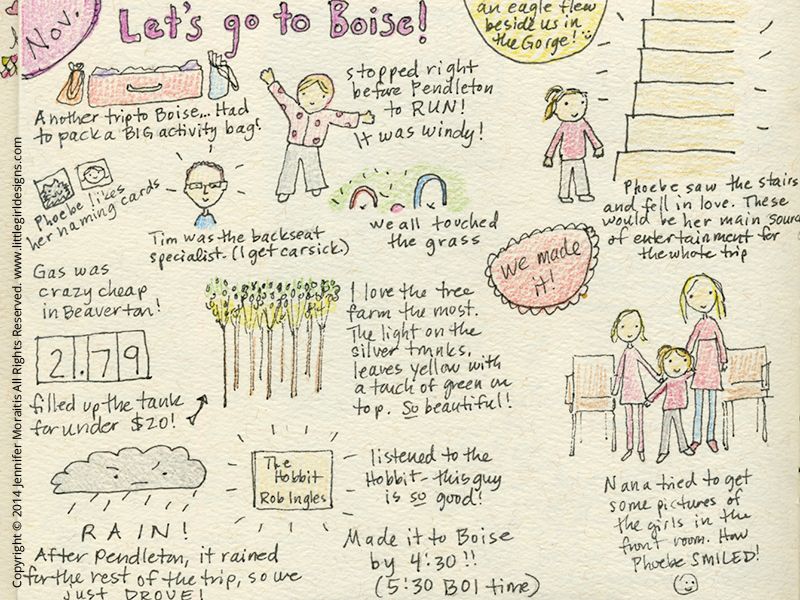 Nov.
Let's go to Boise!
an eagle flew
beside us in
the Gorge!
Another trip to Boise... Had
to pack a BIG activity bag!
stopped right
before Pendleton
to RUN!
It was windy!
Phoebe likes
her naming cards
Tim was the backseat
specialist. (I get carsick)
we all touched
the grass
Phoebe saw the stairs
and fell in love. These
would be her main sour
of entertainment for
the whole trip
we made
it!
Gas was
crazy cheap
in Beaverton!
2.79
filled up the tank
for under $20!
I love the tree
farm the most.
The light on the
silver trunks,
leaves yellow with
a touch of green on
top. So beautiful!
RAIN!
After Pendleton, it rained
for the rest of the trip, so we
just DROVE!
The
Hobbit
Rob Ingles
listened to the
Hobbit - this guy
is so good!
Made it to Boise
by 4:30!!
(5:30 BOI time)
Nana tried to get
some pictures of
the girls in the
front room. How
Phoebe SMILED!
Copyright © 2014 Jennifer Moraitis All Rights Reserved. www.littlegirldesigns.com